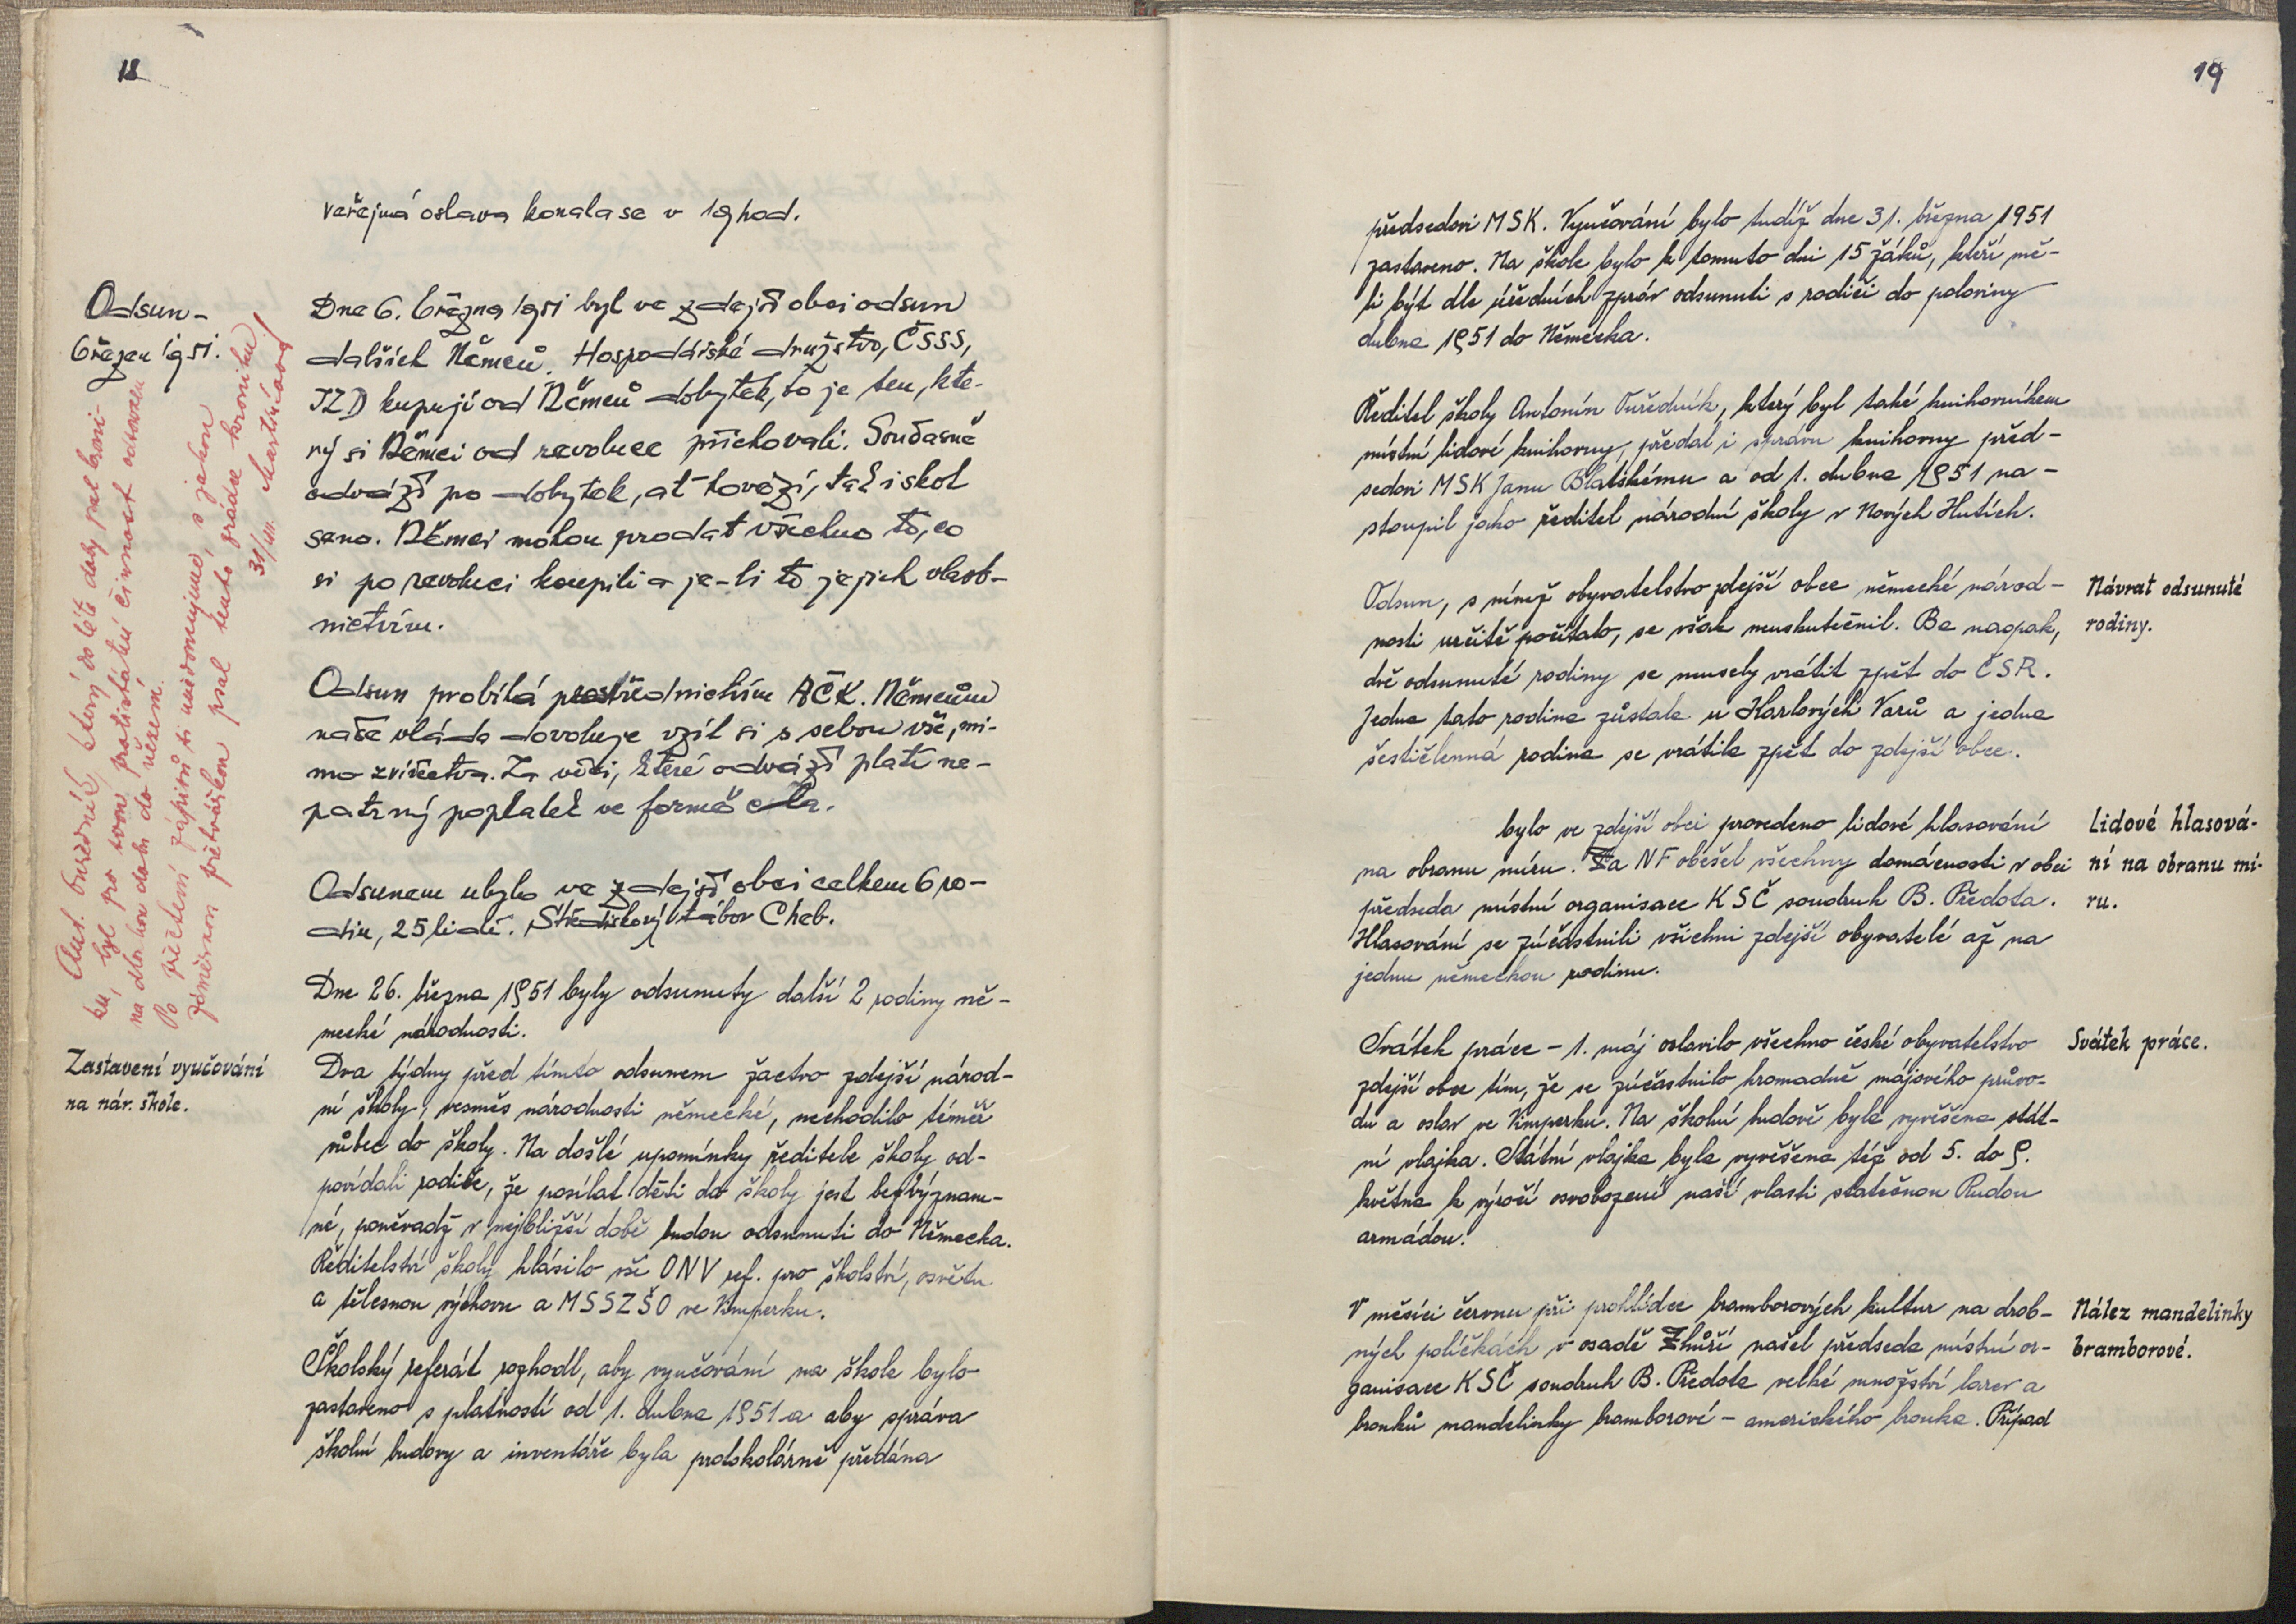 18
veřejná oslava konala se v 19 hod.
Odsun-
březen 1951.
Dne 6. března 1951 byl ve zdejší obci odsun
dalších Němců. Hospodářské družstvo, ČSSS,
JZD kupují od Němců dobytek, to je ten, kte-
rý si Němci od revoluce přichovali. Současně
odváží po dobytek, ať hovězí, tak i skot
seno. Němci mohou prodat všechno to, co
si po revoluci koupili a je-li to jejich vlast-
nictvím.
Odsun probíhá prostřednictvím ČČK. Němcům
naše vláda dovoluje vzít si s sebou vše, mi-
mo zvířectva. Za věci, které odváží platí ne-
patrný poplatek ve formě cla.
Odsunem ubylo ve zdejší obci celkem 6 ro-
din, 25 lidí. Střediskový tábor Cheb.
Dne 26. března 1951 byly odsunuty další 2 rodiny ně-
mecké národnosti.
Zastavení vyučování
na nár. škole.
Dva týdny před tímto odsunem žactvo zdejší národ-
ní školy, vesměs národnosti německé, nechodilo téměř
vůbec do školy. Na došlé upomínky ředitele školy od-
povídali rodiče, že posílat děti do školy jest bezvýznam-
né, poněvadž v nejbližší době budou odsunuti do Německa.
Ředitelství školy hlásilo vše ONV ref. pro školství, osvětu
a tělesnou výchovu a MSSZŠO ve Vimperku.
Školský referát rozhodl, aby vyučování na škole bylo
zastaveno s platností od 1. dubna 1951 a aby správa
školní budovy a inventáře byla protokolárně předána
Ant. Ouředník, který do této doby psal kroni-
ku, byl pro svou protistátní činnost odsouzen
na dlouhou dobu do vězení.
Po přečtení zápisů ti uvědomujeme, s jakou
psal tento zrádce kroniku
31/VII.
19
předsedovi MSK. Vyučování bylo tudíž dne 31. března 1951
zastaveno. Na škole bylo k tomuto dni 15 žáků, kteří mě-
li být dle úředních zpráv odsunuti s rodiči do poloviny
dubna 1951 do Německa.
Ředitel školy Antonín Ouředník, který byl také knihovníkem
místní lidové knihovny, předal i správu knihovny před-
sedovi MSK Janu Blatskému a od 1. dubna 1951 na-
stoupil jako ředitel národní školy v Nových Hutích.
Návrat odsunuté
rodiny.
Odsun, s nímž obyvatelstvo zdejší obce německé národ-
nosti určitě počítalo, se však neuskutečnil. Ba naopak,
dvě odsunuté rodiny se musely vrátit zpět do ČSR.
Jedna tato rodina zůstala u Karlových Varů a jedna
šestičlenná rodina se vrátila zpět do zdejší obce.
Lidové hlasová-
ní na obranu mí-
ru.
bylo ve zdejší obci provedeno lidové hlasování
na obranu míru. Za NF obešel všechny domácnosti v obci
předseda místní organisace KSČ soudruh B. Předota.
Hlasování se zúčastnili všichni zdejší obyvatelé až na
jednu německou rodinu.
Svátek práce.
Svátek práce - 1. máj oslavilo všechno české obyvatelstvo
zdejší obce tím, že se zúčastnilo hromadně májového průvo-
du a oslav ve Vimperku. Na školní budově byla vyvěšena stát-
ní vlajka. Státní vlajka byla vyvěšena též od 5. do 9.
května k výročí osvobození naší vlasti statečnou Rudou
armádou.
Nález mandelinky
bramborové.
V měsíci červnu při prohlídce bramborových kultur na drob-
ných políčkách v osadě Zhůří našel předseda místní or-
ganisace KSČ soudruh B. Předota velké množství larev a
brouků mandelinky bramborové - amerického brouka. Případ